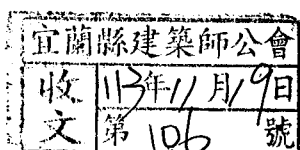 宜蘭縣建築師公會
收文
113年11月19日
第106號